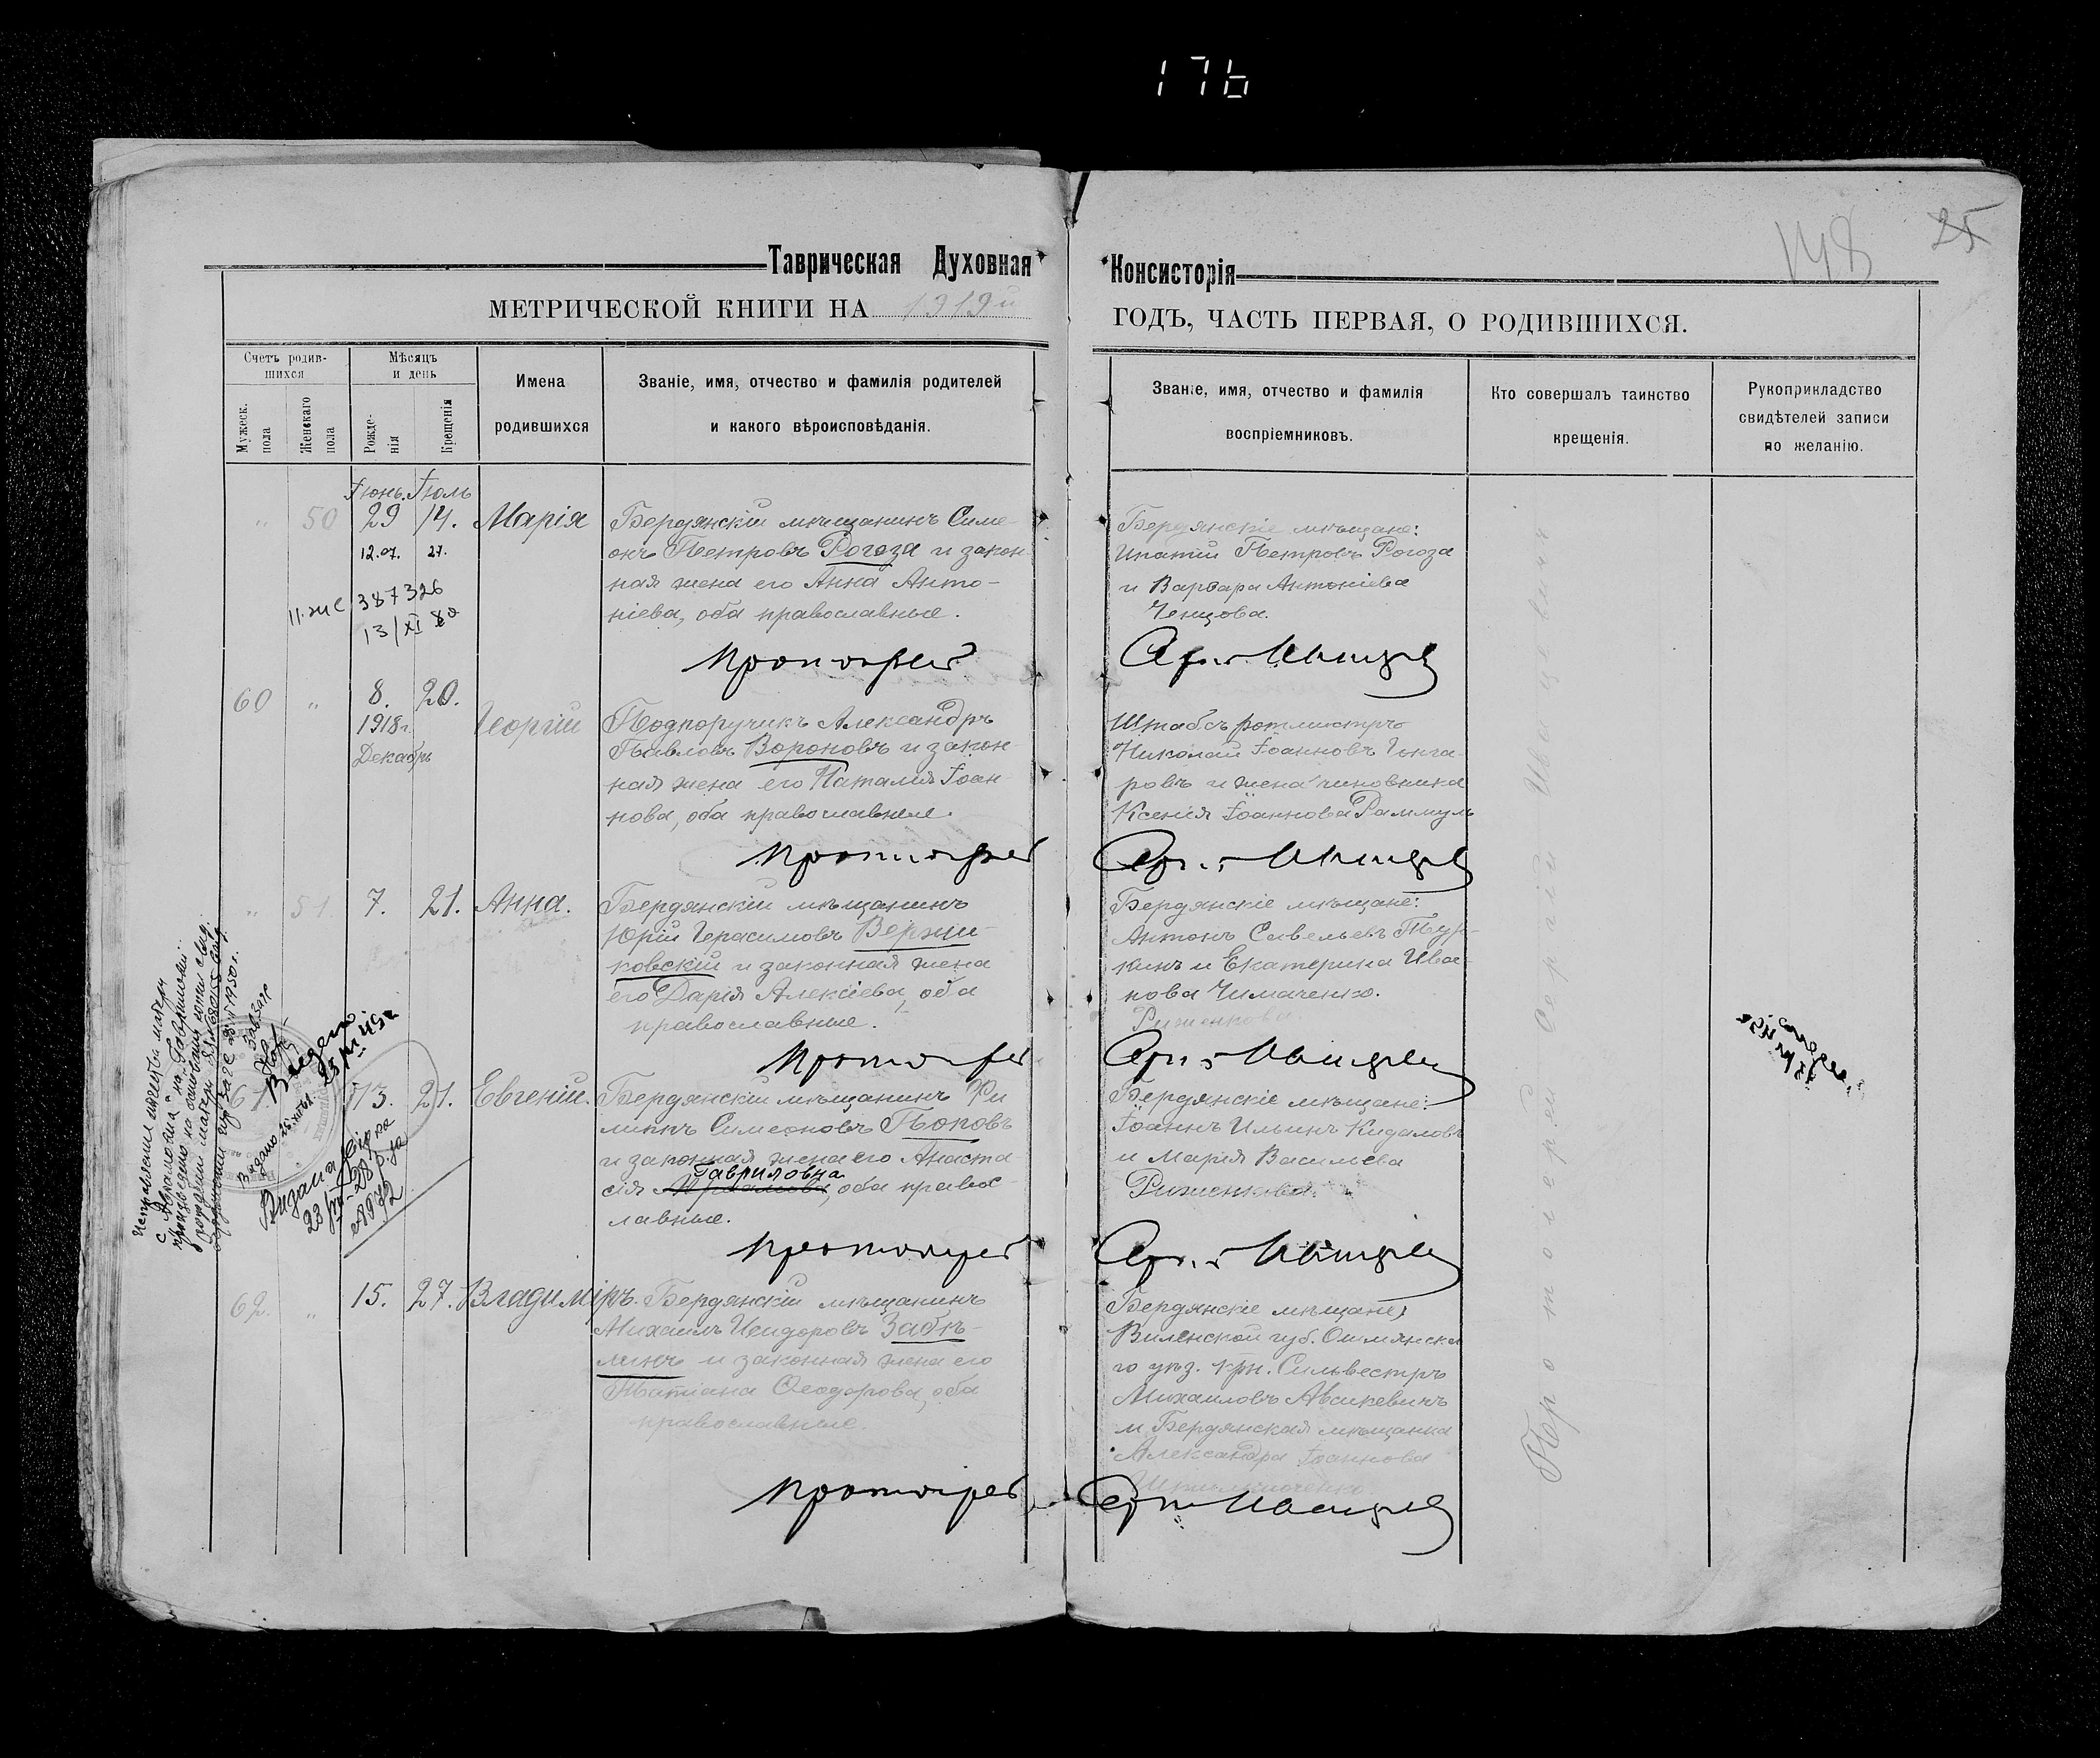 176
148
25
Таврическая Духовная Консисторія
МЕТРИЧЕСКОЙ КНИГИ НА 1919й ГОДЪ, ЧАСТЬ ПЕРВАЯ, О РОДИВШИХСЯ.
Счетъ родив-
шихся
Мужеск.
пола
Женскаго
пола
Мѣсяцъ
и день
Рожде-
нія
Крещенія
Имена
родившихся
Званіе, имя, отчество и фамилія родителей
и какого вѣроисповѣданія.
Званіе, имя, отчество и фамилія
воспріемниковъ.
Кто совершалъ таинство
крещенія.
Рукоприкладство
свидѣтелей записи
по желанію.
Іюнь. Іюль
" 50 29 14. Марія
12.07. 27.
387326
13/XI 80
Бердянскій мѣщанинъ Симе-
онъ Петровъ Рогоза и закон-
ная жена его Анна Анто-
ніева, оба православные.
Бердянскіе мѣщане:
Ипатій Петровъ Рогоза
и Варвара Антоніева
Ченцова.
Протоіерей
60 " 8. 20. Георгій
1918г.
Декабрь
Подпоручикъ Александръ
Павловъ Вороновъ и закон-
ная жена его Наталія Іоан-
нова, оба православные.
Штабсъ ротмистръ
Николай Іоанновъ Гонча-
ровъ и жена чиновника
Ксенія Іоаннова Раммуль
Протоіерей
" 51. 7. 21. Анна.
Бердянскій мѣщанинъ
Юрій Герасимовъ Вержи-
ковскій и законная жена
его Дарія Алексіева, оба
православные.
Бердянскіе мѣщане:
Антонъ Савельевъ Пур-
кинъ и Екатерина Ива-
нова Чимаченко.
Протоіерей
61. 13. 21. Евгеній.
Бердянскій мѣщанинъ Фи
липпъ Симеоновъ Поповъ
и законная жена его Анаста
Гавриловна
сія, оба правос-
лавные.
Бердянскіе мѣщане:
Іоаннъ Ильинъ Кидаловъ
и Марія Васильева
Рыженкова.
Протоіерей
62. " 15. 27. Владиміръ.
Бердянскій мѣщанинъ
Михаилъ Исидоровъ Забѣ-
линъ и законная жена его
Татіана Ѳеодорова, оба
православные.
Бердянскіе мѣщане,
Виленской губ. Ошмянска
го уѣз. крн. Сильвестръ
Михаиловъ Авсикевичъ
и Бердянская мѣщанка
Александра Іоаннова
Протоіерей
Протоіерей Сергій
Исправления имени матери
на "Гавриловна"
произведено на основании
1950 г.
1972